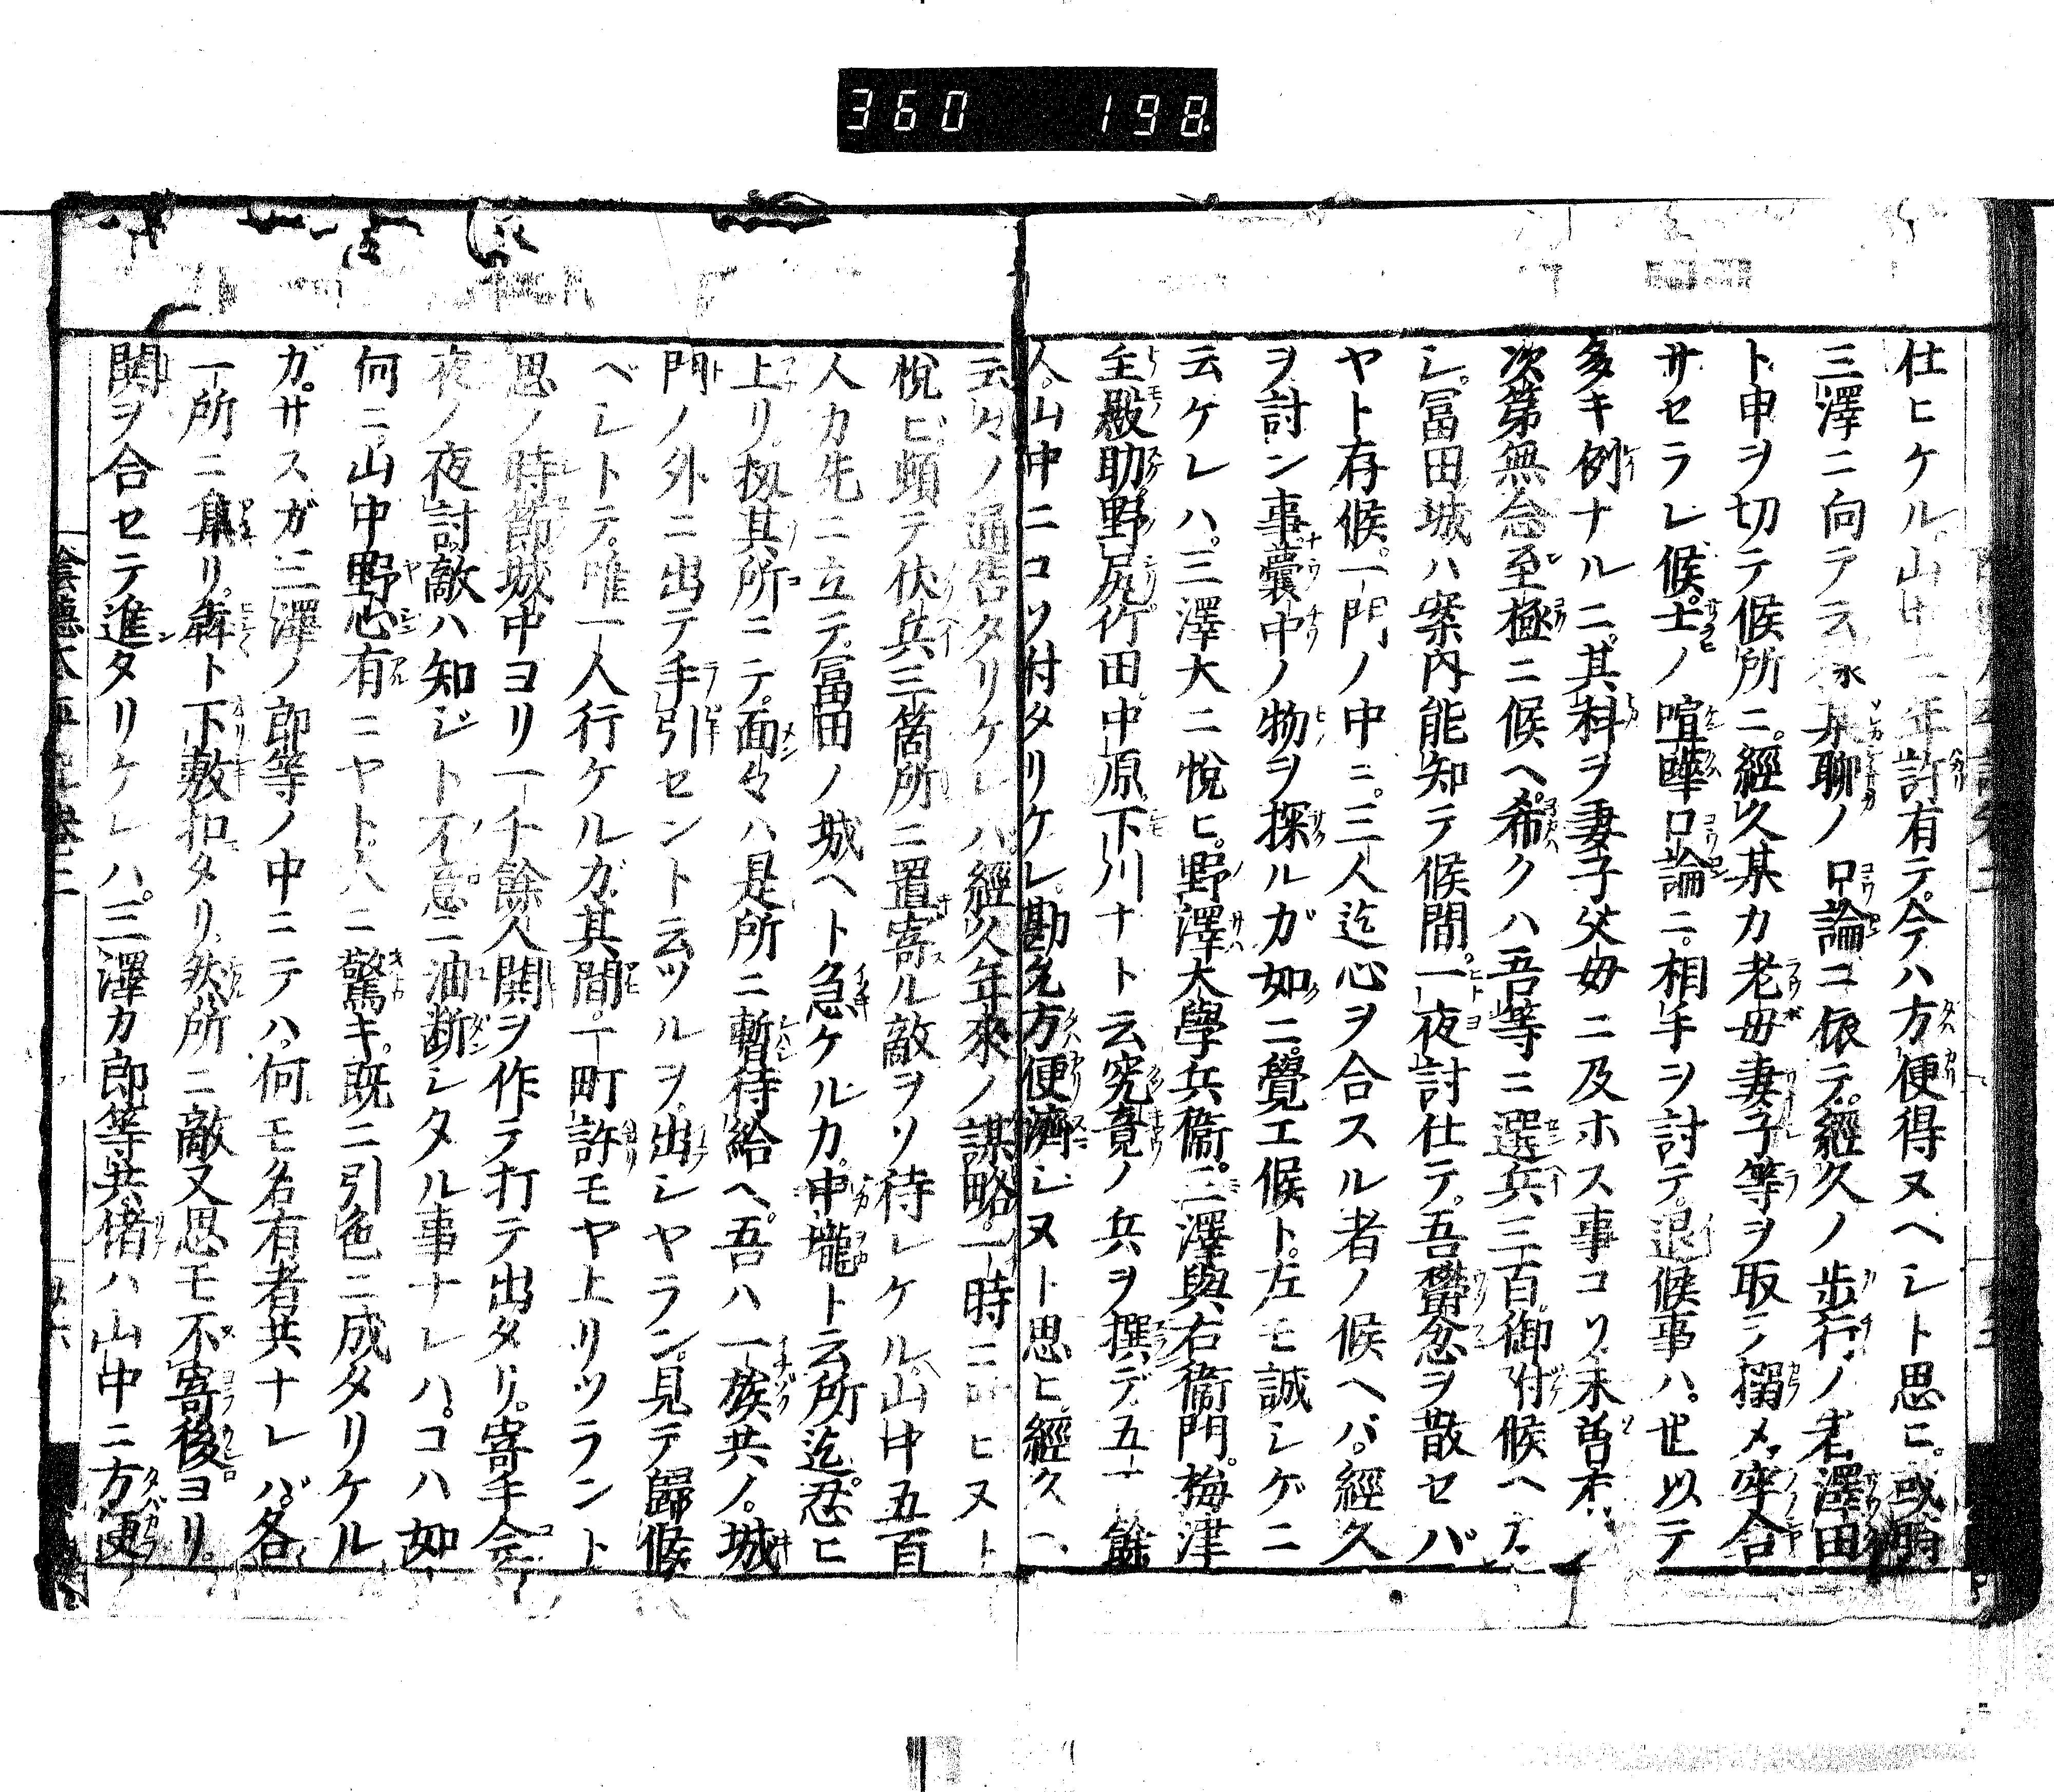 360 198
仕ヒケル山中二年許有テ今ハ方便得ヌヘシト思ヒ或時
三澤ニ向テ云 某聊ノ口論ニ依テ經久ノ歩行ノ者澤田
ト申ヲ切テ候所ニ經久某カ老母妻子等ヲ取テ搦メ牢舎
サセラレ候士ノ喧嘩口論ニ相手ヲ討テ退候事ハ世以テ
多キ例ナルニ其科ヲ妻子父毋ニ及ホス事コソ未曽
次第無念至極ニ候ヘ希クハ吾等ニ選兵三百御附候ヘ
シ冨田城ハ案内能知テ候間一夜討仕テ吾欝忿ヲ散セバ
ヤト存候一門ノ中ニ三人迄心ヲ合スル者ノ候ヘバ經久
ヲ討ン事嚢中ノ物ヲ探ルガ如ニ覺エ候ト左モ誠シゲニ
云ケレハ三澤大ニ悦ヒ野澤大學兵衞三澤與右衞門梅津
主殿助野尻行田中原下川ナト云究竟ノ兵ヲ撰デ五 餘
人山中ニコソ付タリケレ勘允方便濟シヌト思ヒ經久ヘ
云々ノ通告タリケレハ經久年來ノ謀略一時ニ ヒヌト
悦ビ頓テ伏兵三箇所ニ置寄ル敵ヲソ待レケル山中五百
人カ先ニ立テ冨田ノ城ヘト急ケルカ中壠ト云所迄忍ヒ
上リ扨其所ニテ面々ハ是所ニ暫待給ヘ吾ハ一族共ノ城
門ノ外ニ出テ手引セント云ツルヲ出シヤラン見テ歸候
ベシトテ唯一人行ケルガ其間一町許モヤ上リツラント
思ノ時節城中ヨリ一千餘人鬨ヲ作テ打テ出タリ寄手今
夜ノ夜討敵ハ知ジト不意ニ油断シタル事ナレハコハ如
何ニ山中野心有ニヤト八ニ驚キ既ニ引色ニ成タリケル
ガサスガ三澤ノ郎等ノ中ニテハ何モ名有者共ナレバ各
一所ニ集リ犇ト下敷扣タリ然所ニ敵又思モ不寄後ヨリ
鬨ヲ合セテ進タリケレハ三澤カ郎等共偖ハ山中ニ方便